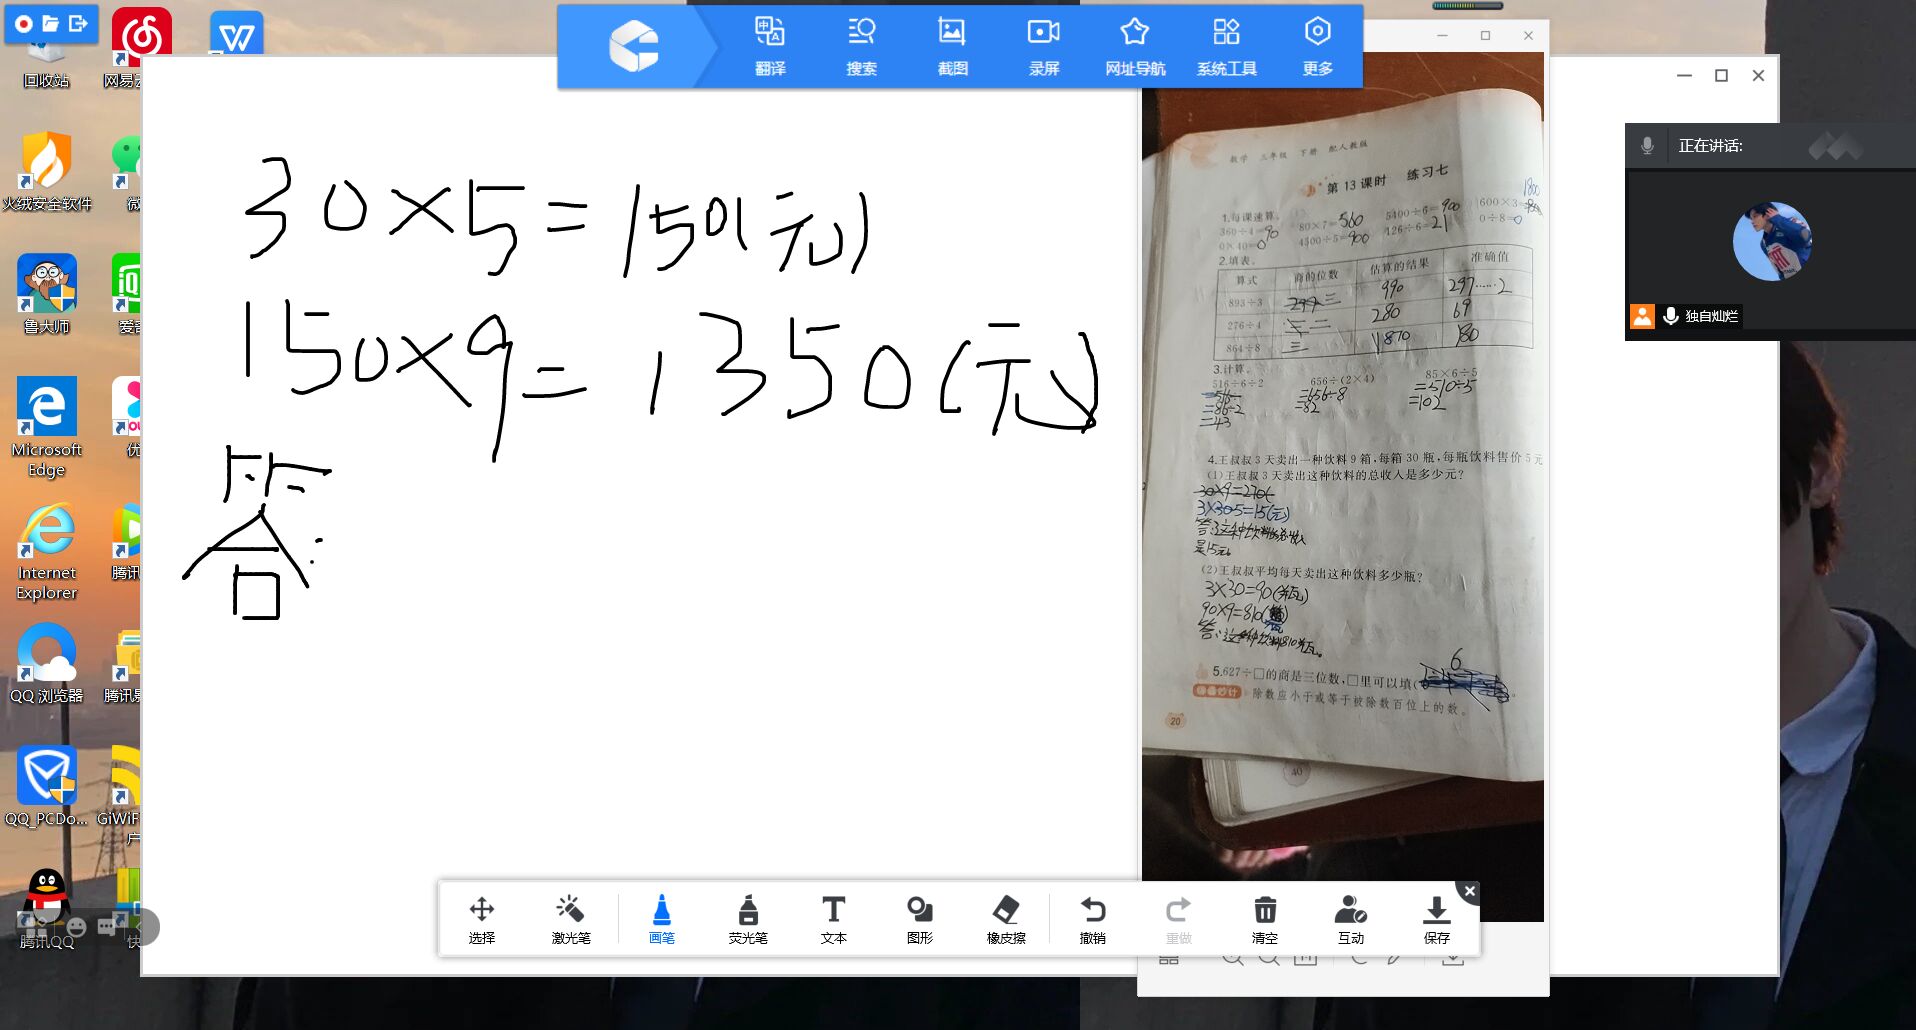 翻译 搜索 截图 录屏 网址导航 系统工具 更多
回收站
网易云
火绒安全软件
微
鲁大师
爱奇
Microsoft Edge
优
Internet Explorer
腾讯
QQ 浏览器
腾讯影
QQ_PCDo...
GiWiFi
户
腾讯QQ
快
30×5=150(元)
150×9=1350(元)
答:
数学 三年级 下册 配人教版
第13课时 练习七
1.每课速算。
360÷4=90 80×7=560 5400÷6=900 600×3=1800
0×40=0 4500÷5=900 126÷6=21 0÷8=0
2.填表。
算式 商的位数 估算的结果 准确值
893÷3 三 990 297……2
276÷4 二 280 69
864÷8 三 1870 180
3.计算。
516÷6÷2 656÷(2×4) 85×6÷5
=516 =656÷8 =510÷5
=86÷2 =82 =102
=43
4.王叔叔3天卖出一种饮料9箱,每箱30瓶,每瓶饮料售价5元
(1)王叔叔3天卖出这种饮料的总收入是多少元?
30×9=270(
3×30 5=15(元)
答:这种饮料的总收入
是15元。
(2)王叔叔平均每天卖出这种饮料多少瓶?
3×30=90(瓶)
90×9=810(
答:这种饮料810瓶。
5.627÷□的商是三位数,□里可以填( 6
除数应小于或等于被除数百位上的数。
20
40
正在讲话:
独自灿烂
选择 激光笔 画笔 荧光笔 文本 图形 橡皮擦 撤销 重做 清空 互动 保存